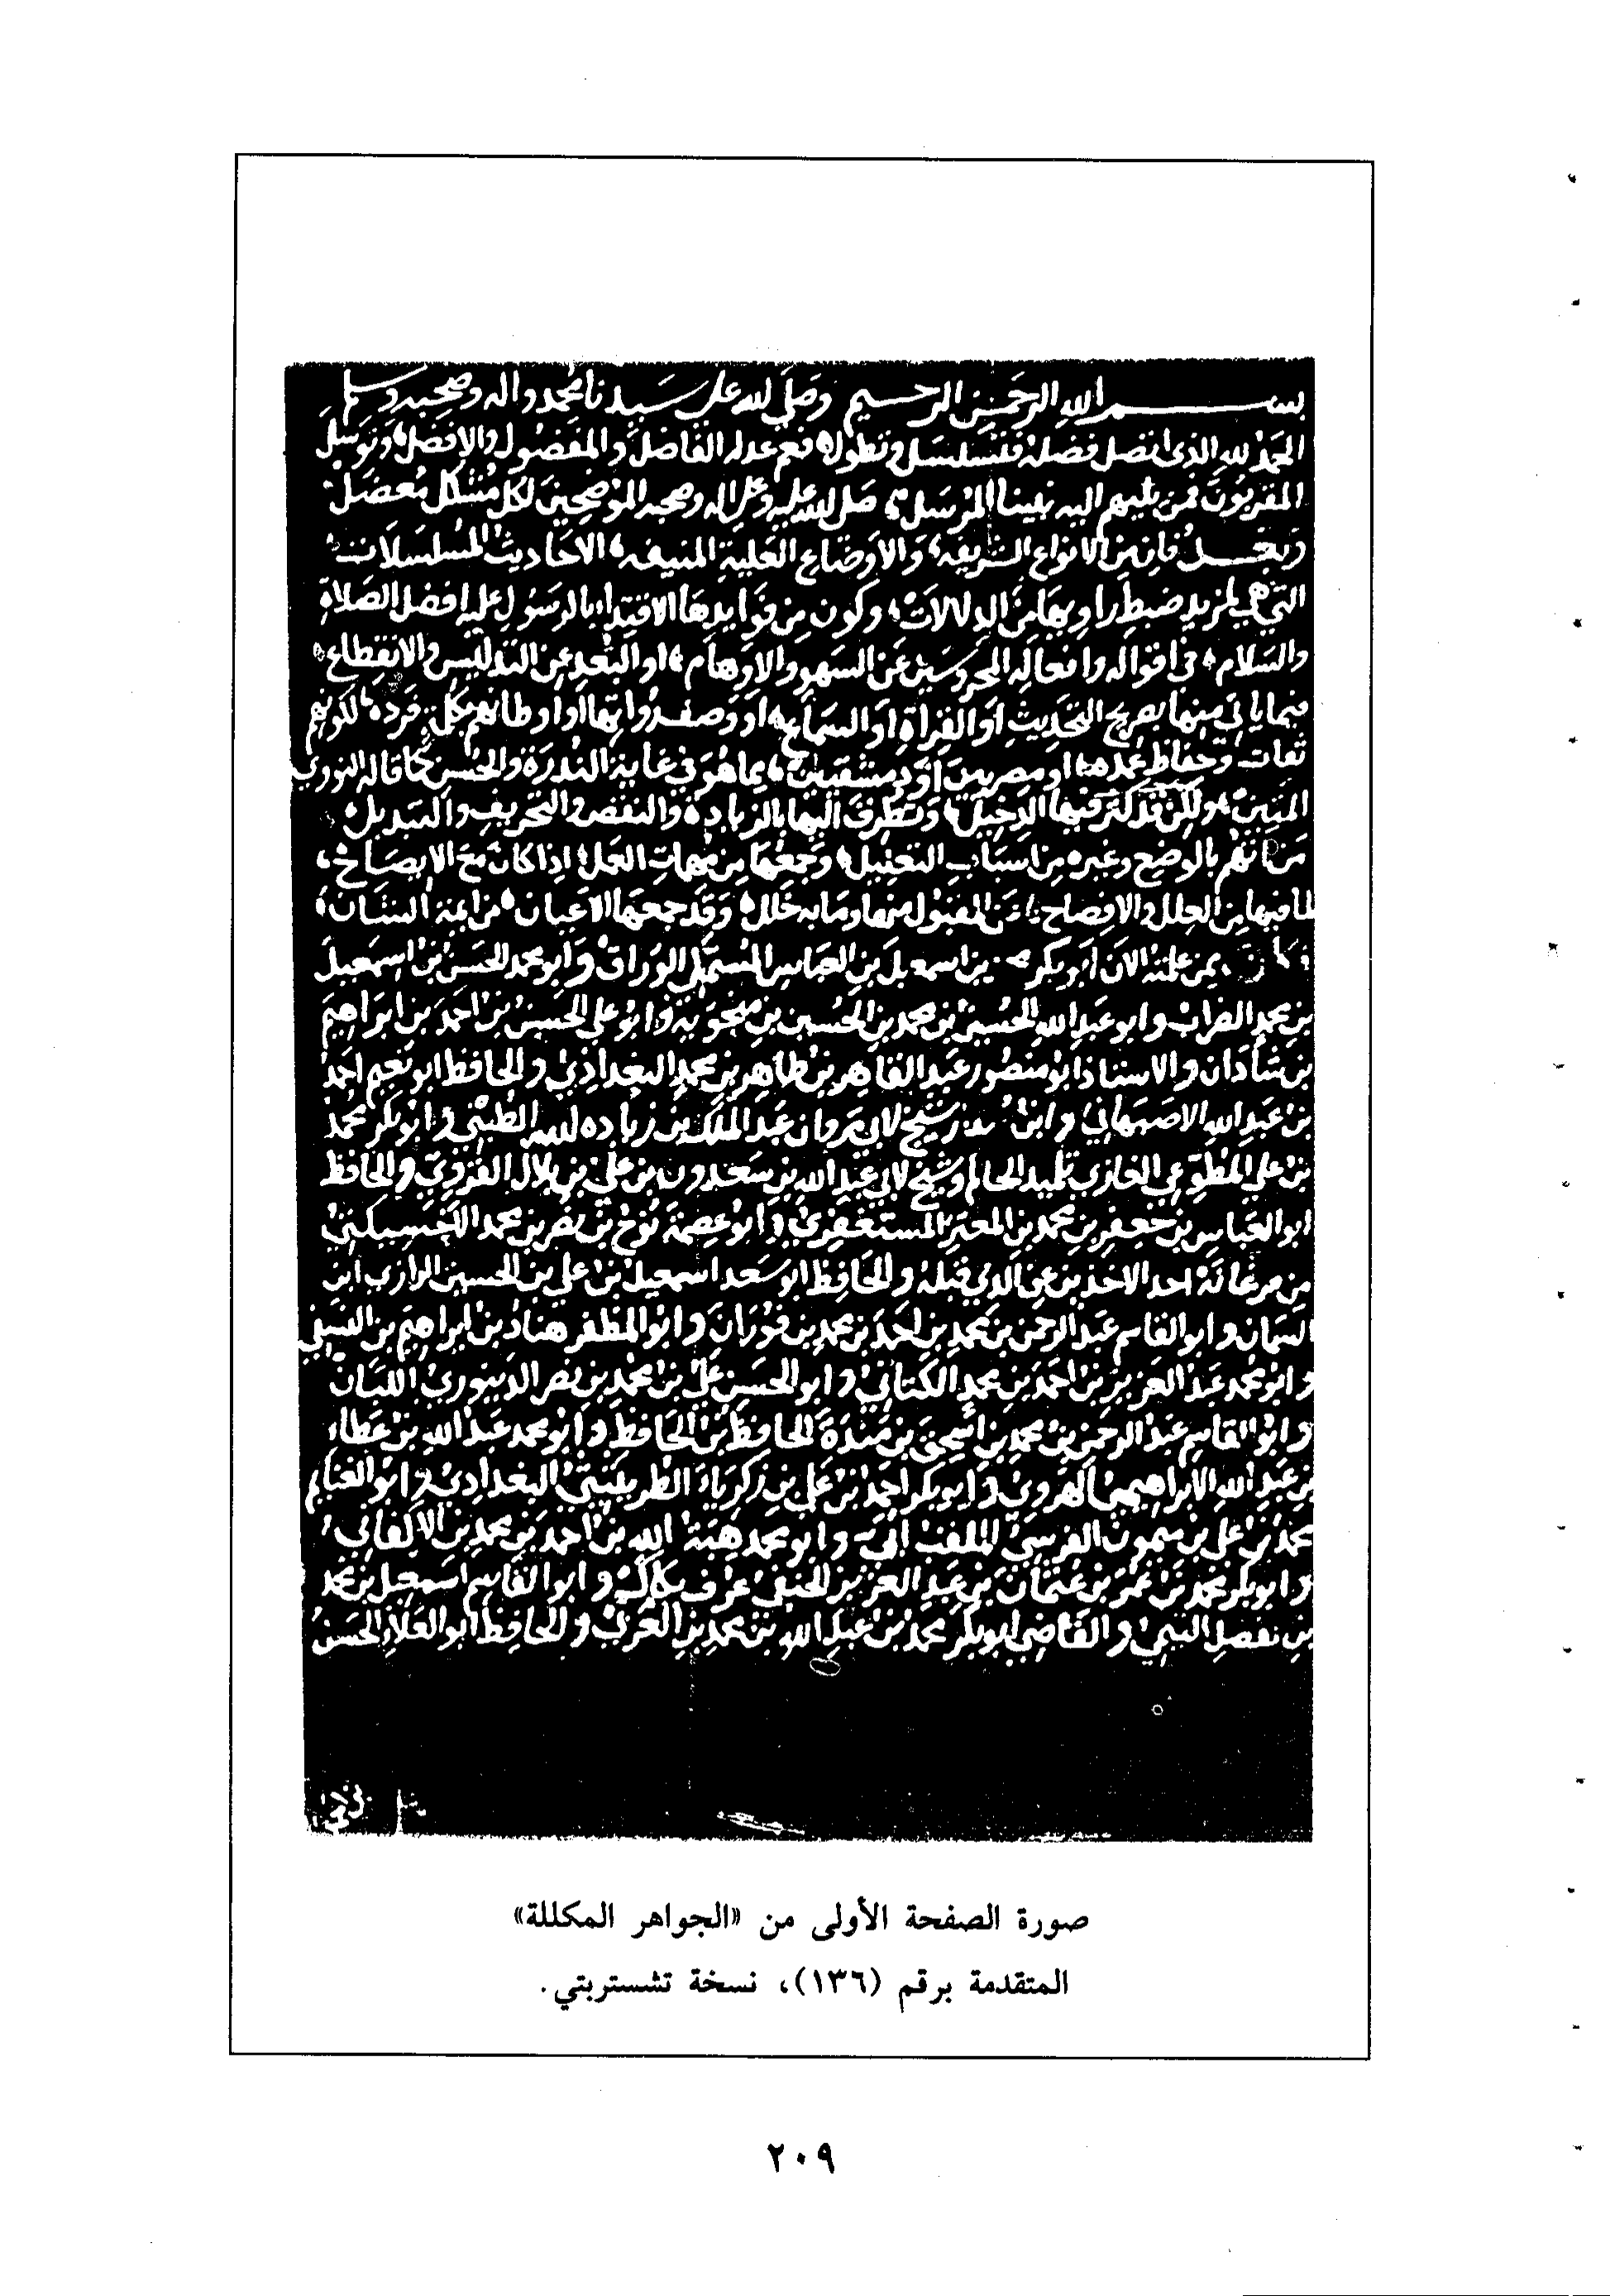 بسم الله الرحمن الرحيم وصلى الله على سيدنا محمد واله وصحبه وسلم
الحمد لله الذي اتصل فضله فتسلسل وتطول فعم عدله الفاضل والمفضول والافضل وتوسل
المقربون فمن يليهم اليه بنبينا المرسل صلى الله عليه وعلى اله وصحبه الموضحين لكل مشكل معضل
وبعد فان من الانواع الشريفه والاوضاع العلية المنيفه الاحاديث المسلسلات
التي هي لمزيد ضبط راويها من الدلالات وكون من فوايدها الاقتداء بالرسول عليه افضل الصلاة
والسلام في اقواله وافعاله المحروسين عن السهو والاوهام او البعد عن التدليس والانقطاع
فيما ياتي منها بصريح التحديث او القراة او السماع او وصف رواتها او اوطانهم بكل فرده لكونهم
ثقات وحفاظ او مصريين او دمشقيين مما هو في غاية الندرة والحسن كما قاله النووي
ولكن قد كثر فيها الدخيل وتطرق اليها بالزيادة والنقص والتحريف والتبديل
من اتهم بالوضع وغيره من اسباب التعليل وجمعها من مهمات العمل اذا كان مع الايضاح
لما فيها من العلل والافصاح عن المقبول منها وما به خلل وقد جمعها الاعيان من ايمة الشان
فكان ممن علمته الان ابو بكر بن اسمعيل بن العباس المستملي الوراق وابو محمد الحسن بن اسمعيل
بن محمد الضراب وابو عبد الله الحسين بن محمد بن الحسين بن منجويه وابو علي الحسن بن احمد بن ابراهيم
بن شاذان والاستاذ ابو منصور عبد القاهر بن طاهر بن محمد البغدادي والحافظ ابو نعيم احمد
بن عبد الله الاصبهاني وابن شيخ لابي مروان عبد الملك بن زيادة الله الطبني وابو بكر محمد
بن علي المطوعي الغازي تلميذ الحاكم وشيخ لابي عبد الله بن سعدون بن علي بن بلال القروي والحافظ
ابو العباس بن جعفر بن محمد بن المعتز المستغفري وابو عصمة نوح بن نصر بن محمد الاخسيكتي
من فرغانة احد الاخذين عن الذي قبله والحافظ ابو سعد اسمعيل بن علي بن الحسين الرازي ابن
السمان وابو القاسم عبد الرحمن بن محمد بن احمد بن محمد بن فوران وابو المظفر هناد بن ابراهيم بن النسفي
وابو محمد عبد العزيز بن احمد بن محمد الكتاني وابو الحسن علي بن محمد بن نصر الدينوري اللبان
وابو القاسم عبد الرحمن بن محمد بن اسحق بن مندة الحافظ بن الحافظ وابو محمد عبد الله بن عطاء
بن عبد الله الابراهيمي الهروي وابو بكر احمد بن علي بن زكرياء الطريثيثي البغدادي وابو الغنايم
محمد بن علي بن ميمون النرسي الملقب ابي وابو محمد هبة الله بن احمد بن محمد بن الاكفاني
وابو بكر محمد بن عمر بن عثمان بن عبد العزيز الحنفي عرف بكاك وابو القاسم اسمعيل بن محمد
بن الفضل التيمي والقاضي ابو بكر محمد بن عبد الله بن محمد بن العربي والحافظ ابو العلاء الحسن
صورة الصفحة الأولى من «الجواهر المكللة»
المتقدمة برقم (١٣٦)، نسخة تشستربتي.
٢٠٩